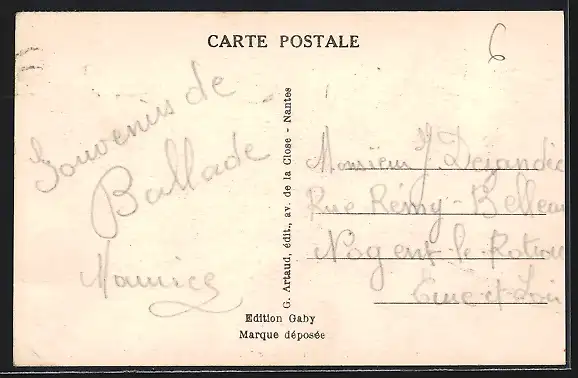 CARTE POSTALE
6
Souvenirs de
Ballade
Maurice
G. Artaud, édit., av. de la Close - Nantes
Monsieur J. Dejandic
Rue Rémy - Belleau
Nogent-le-Rotrou
Eure et Loir
Edition Gaby
Marque déposée